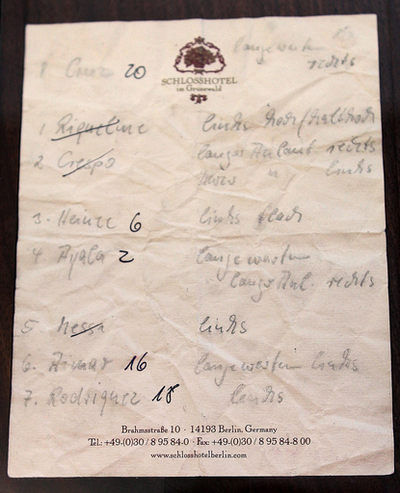 lange warten
rechts
8 Cruz 20
SCHLOSSHOTEL
im Grunewald
1 Riquelme links hoch/halbhoch
2 Crespo langer Anlauf rechts
links
3. Heinze 6 links flach
4 Ayala 2 lange warten
langer Anl. rechts
5 Messi links
6. Aimar 16 lange warten links
7. Rodriguez 18 links
Brahmsstraße 10 · 14193 Berlin, Germany
Tel.: +49-(0)30 / 8 95 84-0 · Fax: +49-(0)30 / 8 95 84-8 00
www.schlosshotelberlin.com